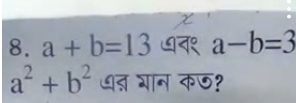 8. a + b=13 এবং a−b=3
a² + b² এর মান কত?